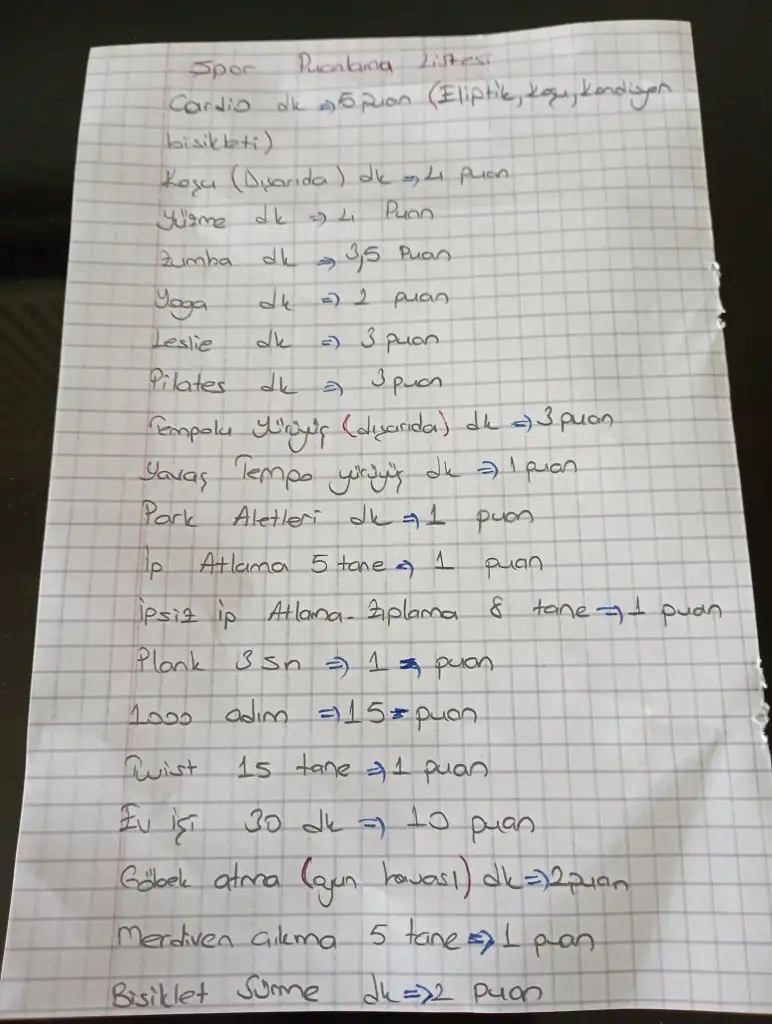 Spor Puanlama Listesi
Cardio dk ⇒ 5 puan (Eliptik, koşu, kondisyon
bisikleti)
Koşu (Dışarıda) dk ⇒ 4 puan
Yüzme dk ⇒ 4 Puan
Zumba dk ⇒ 3,5 Puan
Yoga dk ⇒ 2 puan
Leslie dk ⇒ 3 puan
Pilates dk ⇒ 3 puan
Tempolu Yürüyüş (dışarıda) dk ⇒ 3 puan
Yavaş Tempo yürüyüş dk ⇒ 1 puan
Park Aletleri dk ⇒ 1 puan
İp Atlama 5 tane ⇒ 1 puan
İpsiz ip Atlama-Zıplama 8 tane ⇒ 1 puan
Plank 3 sn ⇒ 1 puan
1000 adım ⇒ 15 puan
Twist 15 tane ⇒ 1 puan
Ev işi 30 dk ⇒ 10 puan
Göbek atma (oyun havası) dk ⇒ 2 puan
Merdiven çıkma 5 tane ⇒ 1 puan
Bisiklet Sürme dk ⇒ 2 puan